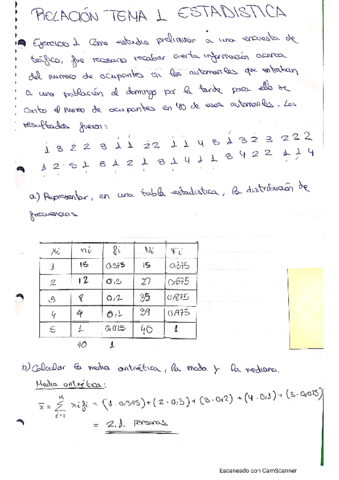 RELACIÓN TEMA 1 ESTADISTICA
Ejercicio 1. Como estudio preliminar a una encuesta de
tráfico, fue necesario recabar cierta información acerca
del numero de ocupantes en los automoviles que entraban
a una población el domingo por la tarde para ello se
conto el numero de ocupantes en 40 de esos automoviles. Los
resultados fueron:
1 3 2 2 3 1 1 2 2 1 1 4 3 1 3 2 3 2 2 2
1 2 1 2 1 3 1 4 1 1 3 4 2 2 1 1 4
a) Representar, en una tabla estadistica, la distribución de
frecuencias
xi ni fi Ni Fi
1 15 0,375 15 0,375
2 12 0,3 27 0,675
3 8 0,2 35 0,875
4 4 0,1 39 0,975
5 1 0,025 40 1
40 1
b) Calcular la media aritmética, la moda y la mediana.
Media aritmética:
x̄ = Σ xi fi = (1·0,375) + (2·0,3) + (3·0,2) + (4·0,1) + (5·0,025)
= 2,1 personas
Escaneado con CamScanner